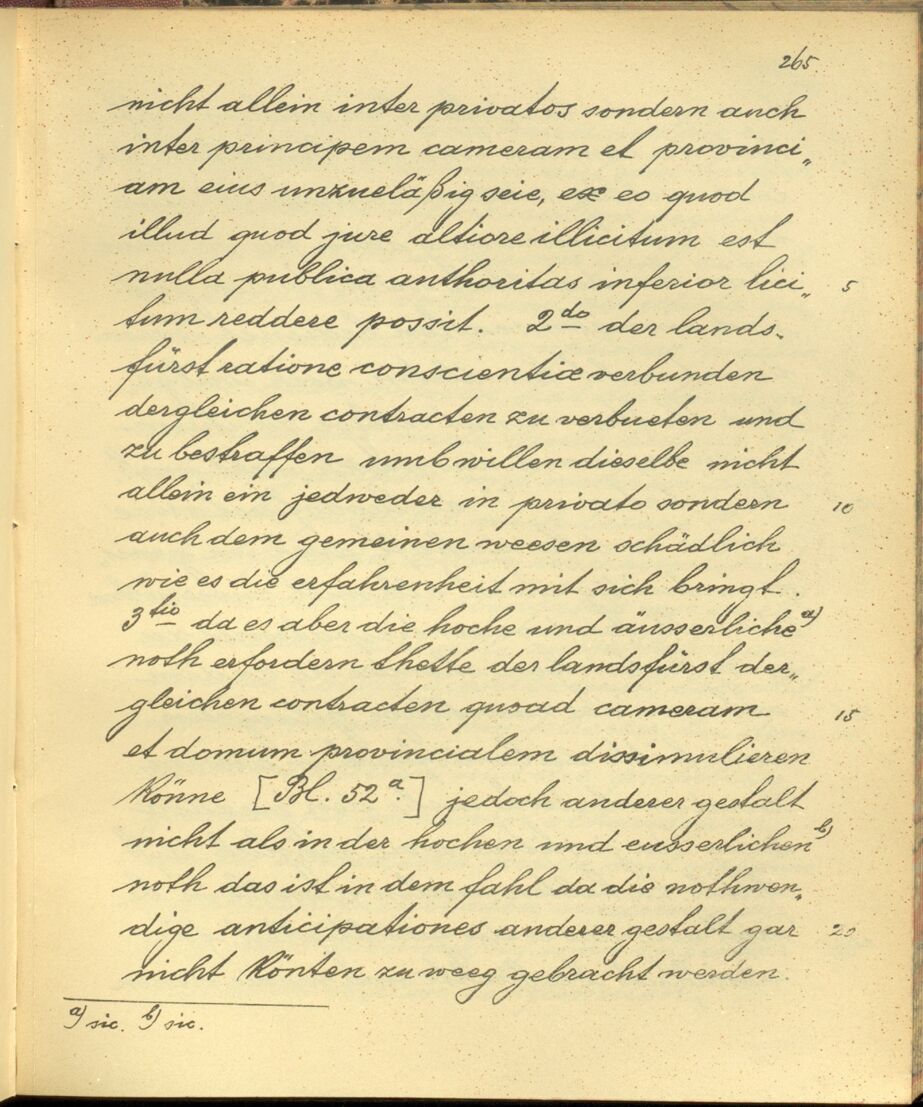 265
nicht allein inter privatos sondern auch
inter principem cameram et provinci„
am eius unzueläßig seie, ex eo quod
illud quod jure altiore illicitum est
nulla publica authoritas inferior lici„ 5
tum reddere possit. 2do der lands„
fürst ratione conscientiæ verbunden
dergleichen contracten zu verbueten und
zu bestraffen umb willen dieselbe nicht
allein ein jedweder in privato sondern 10
auch dem gemeinen weesen schädlich
wie es die erfahrenheit mit sich bringt.
3tio da es aber die hoche und äusserliche a)
noth erfordern thette der landsfürst der„
gleichen contracten quoad cameram 15
et domum provincialem dissimulieren
könne [Bl. 52a.] jedoch anderer gestalt
nicht als in der hochen und eusserlichen b)
noth das ist in dem fahl da die nothwen„
dige anticipationes anderer gestalt gar 20
nicht könten zu weeg gebracht werden.
a) sic. b) sic.